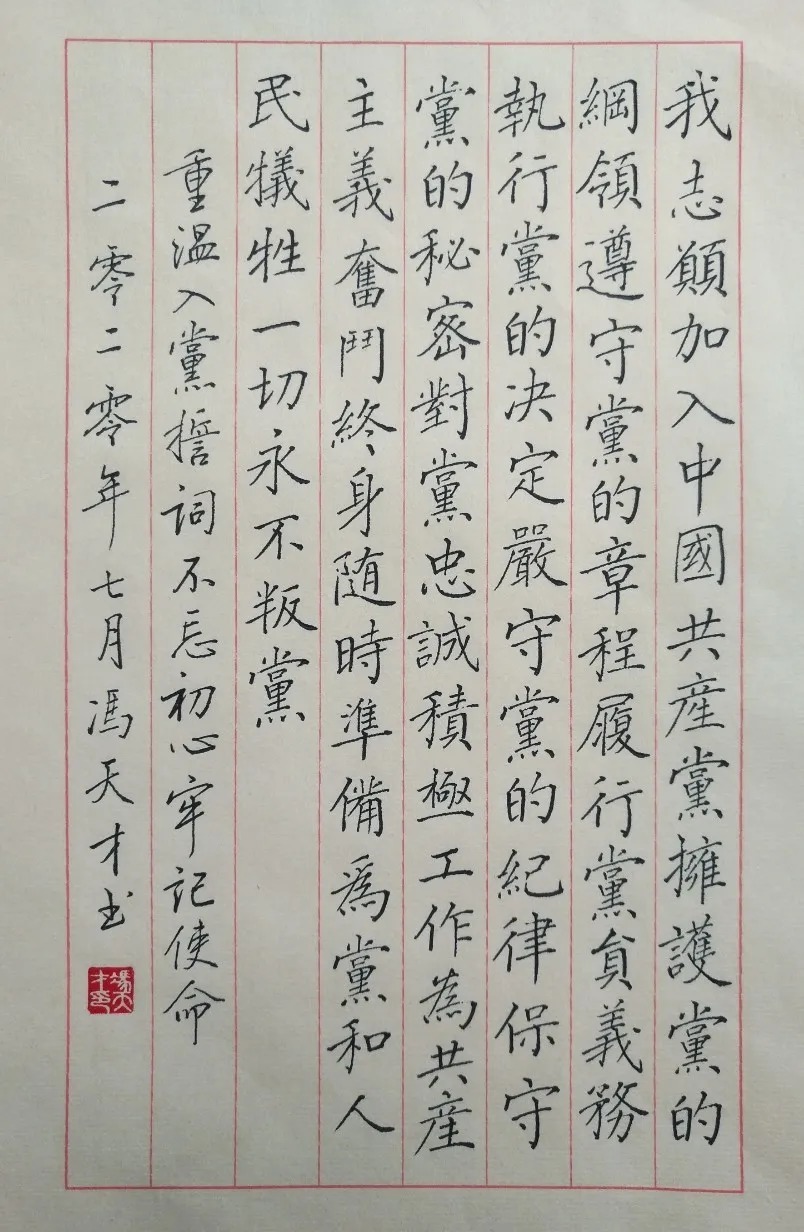 我志願加入中國共産黨擁護黨的
綱領遵守黨的章程履行黨員義務
執行黨的决定嚴守黨的紀律保守
黨的秘密對黨忠誠積極工作為共産
主義奮鬥終身随時準備爲黨和人
民犧牲一切永不叛黨
重温入黨誓词不忘初心牢记使命
二零二零年七月馮天才书
馮天才印